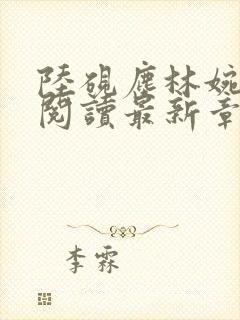 陸硯塵林婉
閱讀最新章
李霖